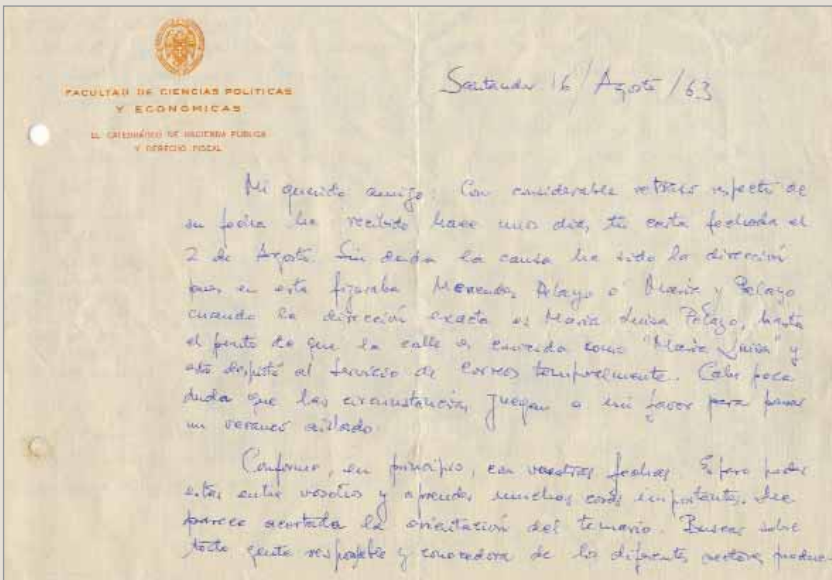 FACULTAD DE CIENCIAS POLITICAS
Y ECONOMICAS
EL CATEDRÁTICO DE HACIENDA PÚBLICA
Y DERECHO FISCAL
Santander 16 / Agosto / 63
Mi querido amigo: Con considerable retraso respecto de
su fecha he recibido hace unos dias, tu carta fechada el
2 de Agosto. Sin duda la causa ha sido la dirección
pues en esta figuraba Menendez Pelayo o Maria y Pelayo
cuando la dirección exacta es Maria Luisa Pelayo, hasta
el punto de que la calle es conocida como "Maria Luisa" y
esto al Servicio de Correos temporalmente. Cabe poca
duda que las circunstancias juegan a mi favor para pasar
un veraneo aislado.
Conforme, en principio, con vuestras fechas. Espero poder
estar entre vosotros y aprender muchas cosas importantes. Me
parece acertada la orientación del temario. Buscar sobre
todo gente responsable y conocedora de los diferentes sectores